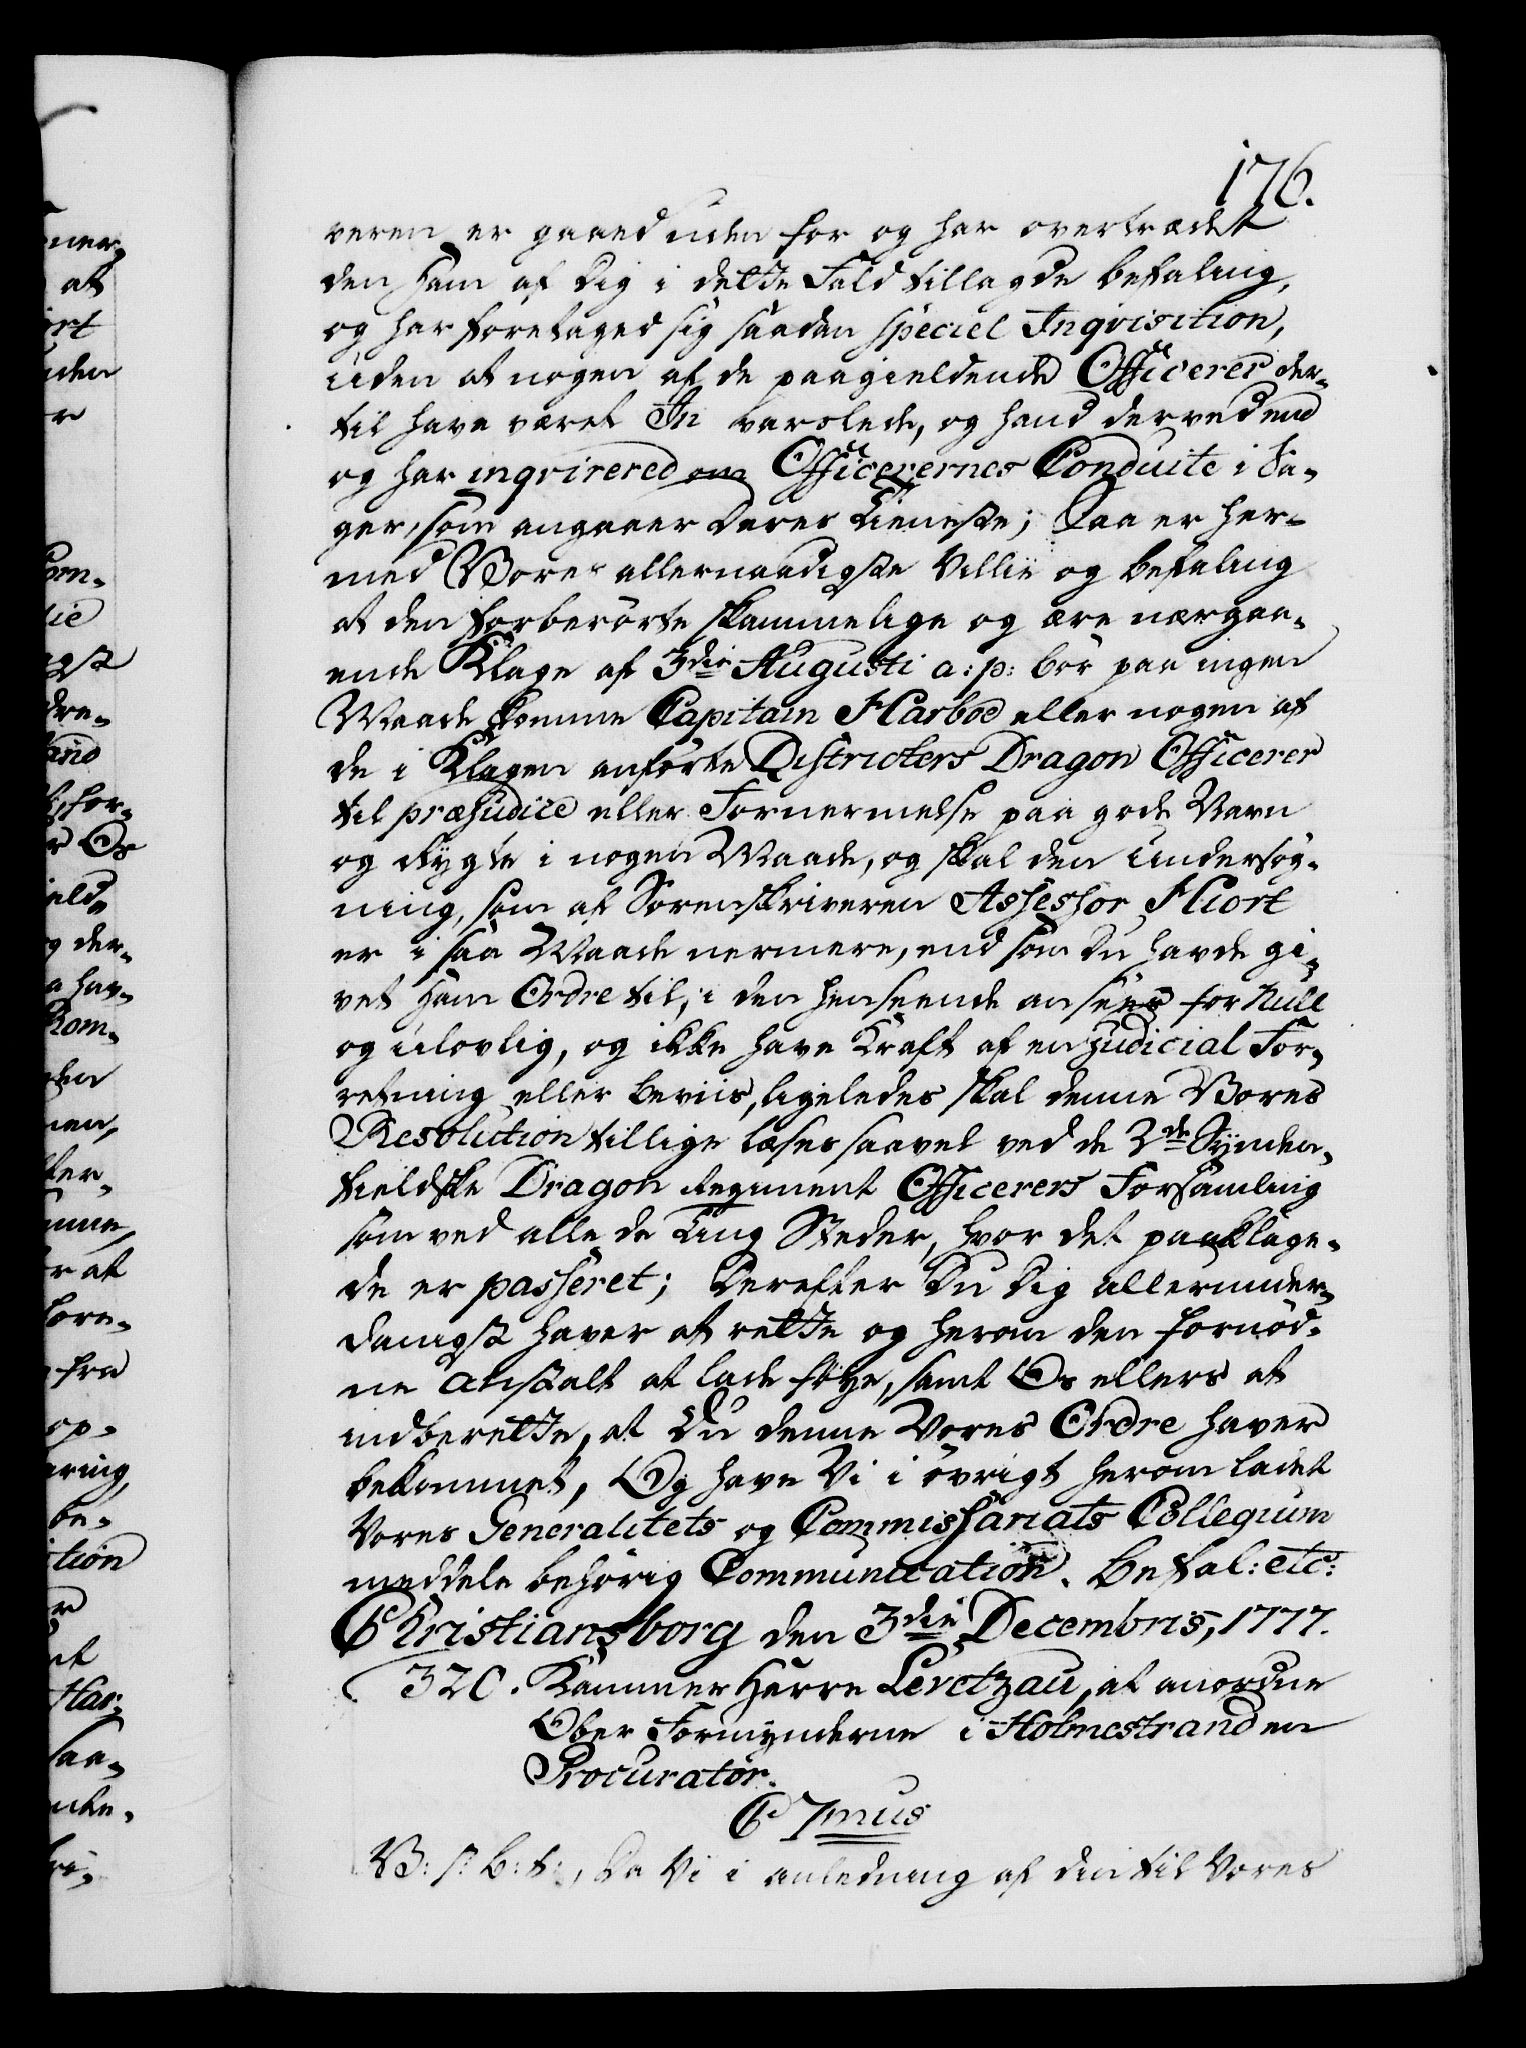 176.
veren er gaaed uden for og har overtrædet
den ham af Dig i dette Fald tillagde befaling,
og har foretaged sig saadan speciel Inqvisition,
uden at nogen af de paagieldende Officerer der-
til have været In varslede, og hand derved end
og har inqvirered om Officerernes Conduite i Sa-
ger, som angaaer deres Tieneste; Saa er her-
med Vores allernaadigste Villie og befaling
at den forberørte skammelige og ære nærgaa-
ende Klage af 3die Augusti a: p: bør paa ingen
Maade komme Capitain Harboe eller nogen af
de i Klagen anførte Districters Dragon Officerer
til præjudice eller Fornermelse paa gode Navn
og Rygte i nogen Maade, og skal den undersøg-
ning, som af Sorenskriveren Assessor Hiort
er i saa Maade nermere, end som Du havde gi-
vet ham Ordre til, i den henseende ansees for Null
og ulovlig, og ikke have Kraft af en Judicial For-
retning eller beviis, ligeledes skal denne Vores
Resolution tillige læses saavel ved de 2de Synden-
fieldske Dragon Regiment Officerers Forsamling
som ved alle de Ting Steder, hvor det paaklage-
de er passeret; Derefter Du Dig allerunder-
danigst haver at rette og herom den fornød-
ne Anstalt at lade føye, samt Os ellers at
indberette, at Du denne Vores Ordre haver
bekommet, Og have Vi i øvrigt herom ladet
Vores Generalitets og Commissariats Collegium
meddele behørig Communication. Befal: etc:
Christiansborg den 3die Decembris, 1777.
320. Kammer Herre Levetzau, at anordne
Ober Formynderne i Holmestrand en
Procurator.
C 7mus
V: s: b: t:, Da Vi i anledning af din til Vores